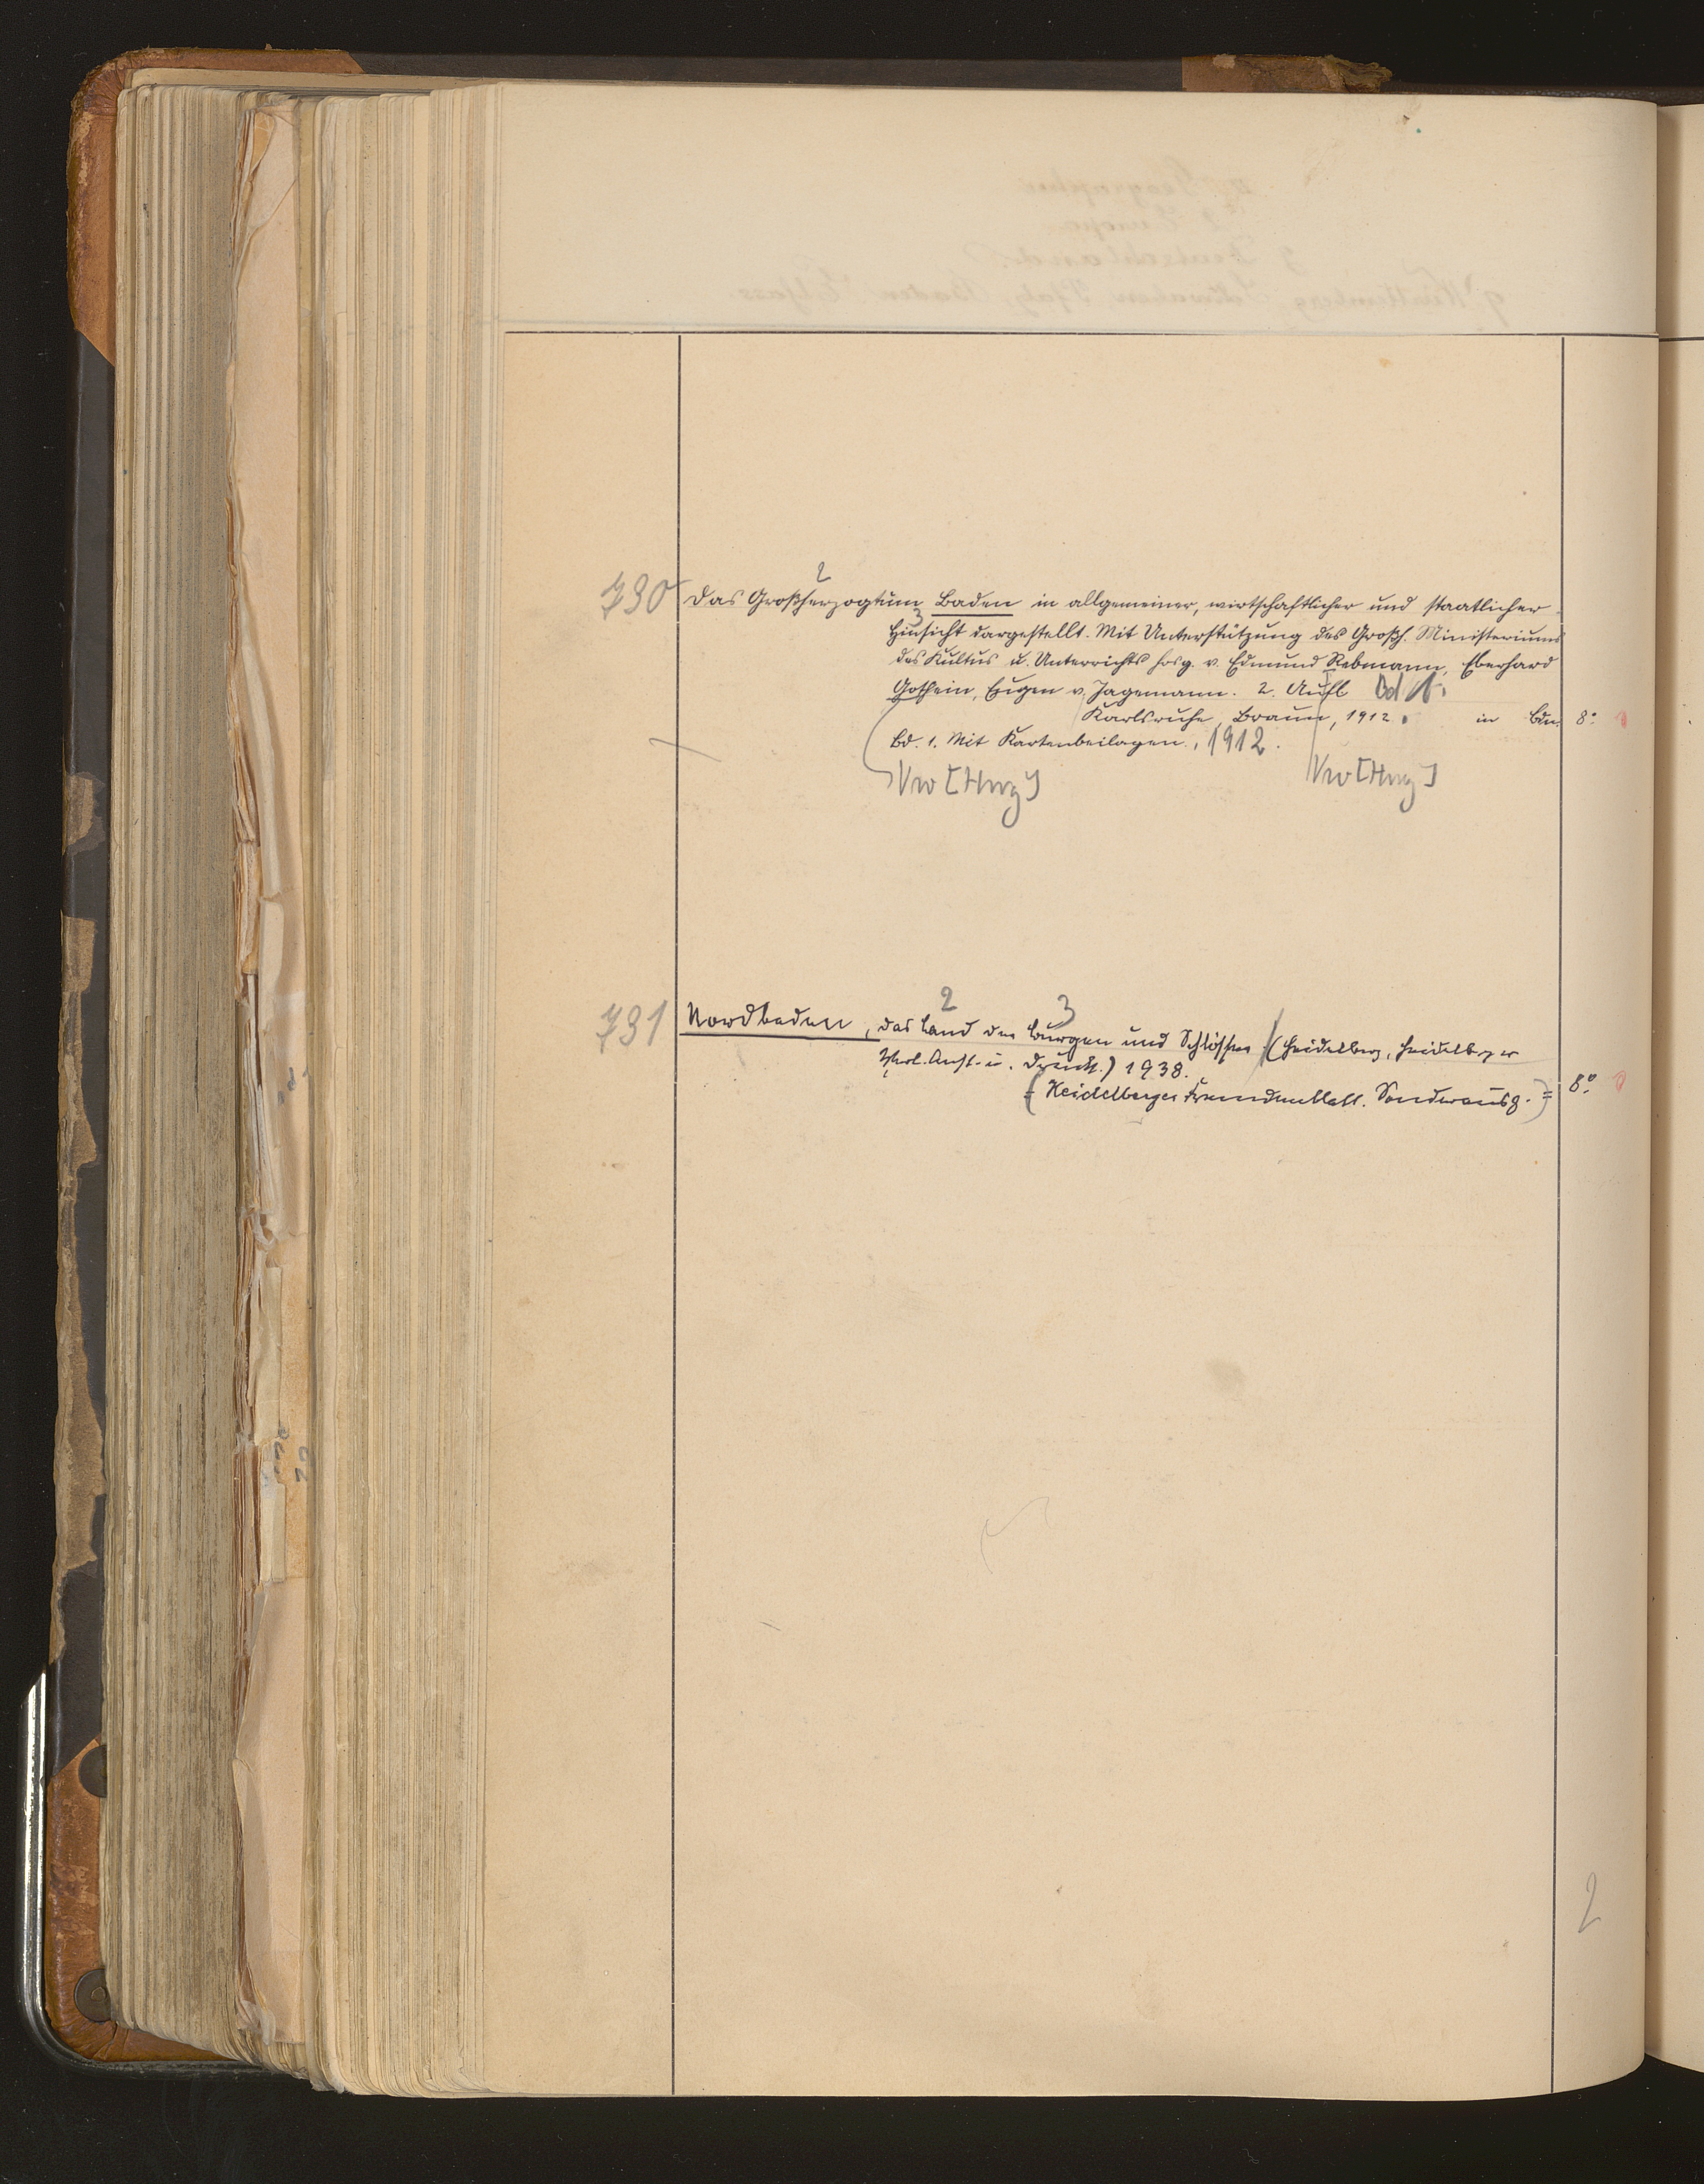 2
730 Das Großherzogtum Baden in allgemeiner, wirtschaftlicher und staatlicher
3
Hinsicht dargestellt. Mit Unterstützung des Großh. Ministeriums
des Kultus u. Unterrichts hrsg. v. Edmund Rebmann, Eberhard
Gothein, Eugen v. Jagemann. 2. Aufl Bd 1.
Karlsruhe, Braun, 1912. in Bdn. 8°
Bd. 1. Mit Kartenbeilagen. 1912.
Vw [Hrg] Vw [Hrg]
2 3
731 Nordbaden, das Land der Burgen und Schlösser. (Heidelberg, Heidelberger
Verl. Anst. u. Druck.) 1938.
(= Heidelberger Fremdenblatt. Sonderausg. =) 8°
2